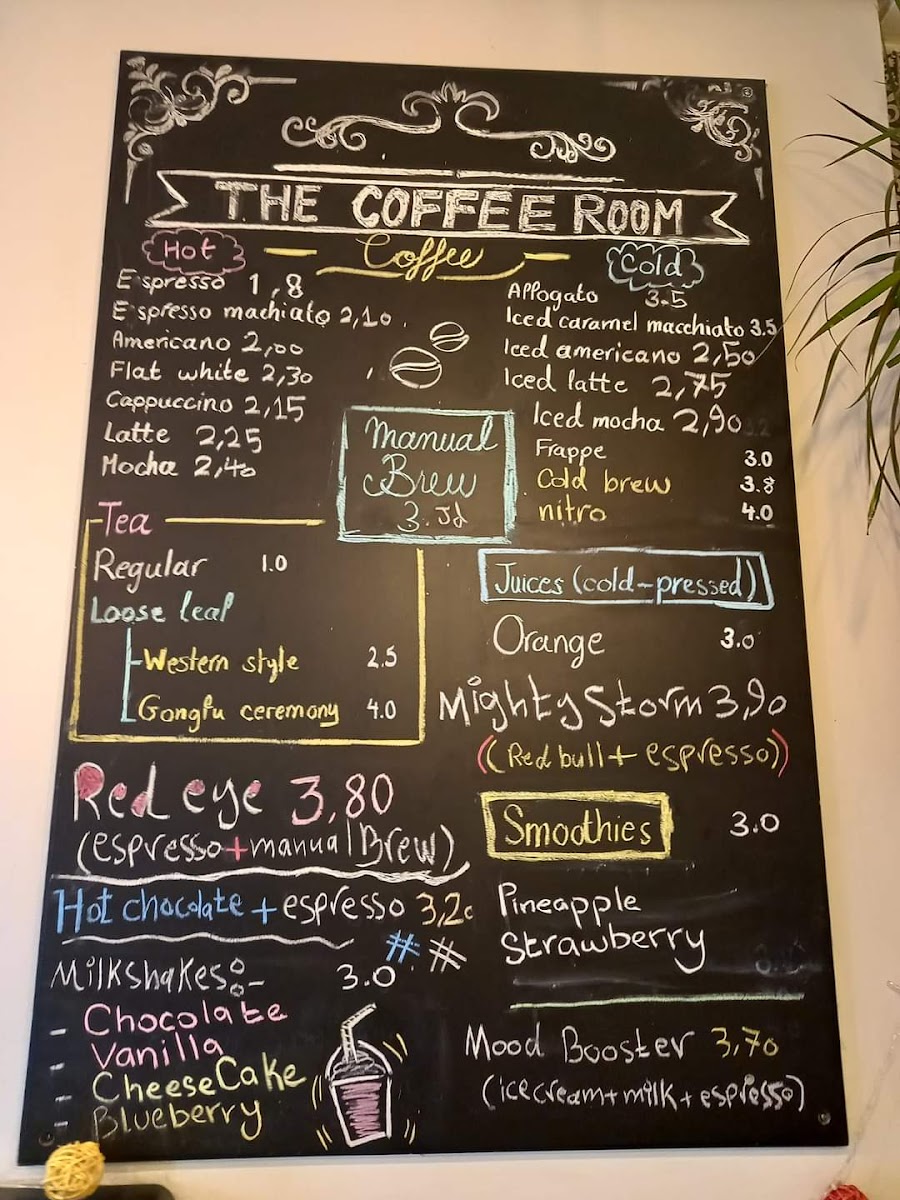 THE COFFEE ROOM
Coffee
Hot
Espresso 1,8
Espresso machiato 2,10
Americano 2,00
Flat white 2,30
Cappuccino 2,15
Latte 2,25
Mocha 2,40
Cold
Affogato 3.5
Iced caramel macchiato 3.5
Iced americano 2,50
Iced latte 2,75
Iced mocha 2,90
Frappe 3.0
Cold brew 3.8
nitro 4.0
Manual
Brew
3. Jd
Tea
Regular 1.0
Loose leaf
Western style 2.5
Gongfu ceremony 4.0
Juices (cold-pressed)
Orange 3.0
Mighty Storm 3,90
(Red bull + espresso)
Red eye 3,80
(espresso + manual Brew)
Hot chocolate + espresso 3,20
# #
Smoothies 3.0
Pineapple
Strawberry
Milkshakes:- 3.0
- Chocolate
- Vanilla
- CheeseCake
- Blueberry
Mood Booster 3,70
(icecream + milk + espresso)